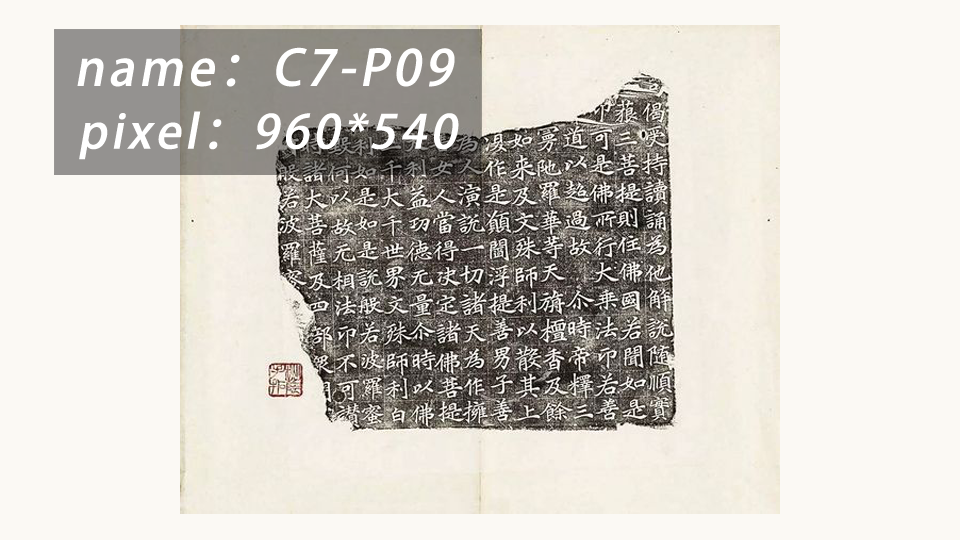 name：C7-P09
pixel：960*540
偈受持讀誦為他解說隨順實
三菩提則住佛國若聞如是
印可是佛所行大乘法印若善
道以超過故 尒時帝釋三
陁羅華等天旃檀香及餘
如來及文殊師利以散其上
作是願閻浮提善男子善
為人演說一切諸天為作擁
女人當得决定諸佛菩提
利益功德无量尒時以佛
千大千世界文殊師利白
利如是如是說般若波羅蜜
何以故无相法印不可讃
諸大菩薩及四部眾
般若波羅蜜